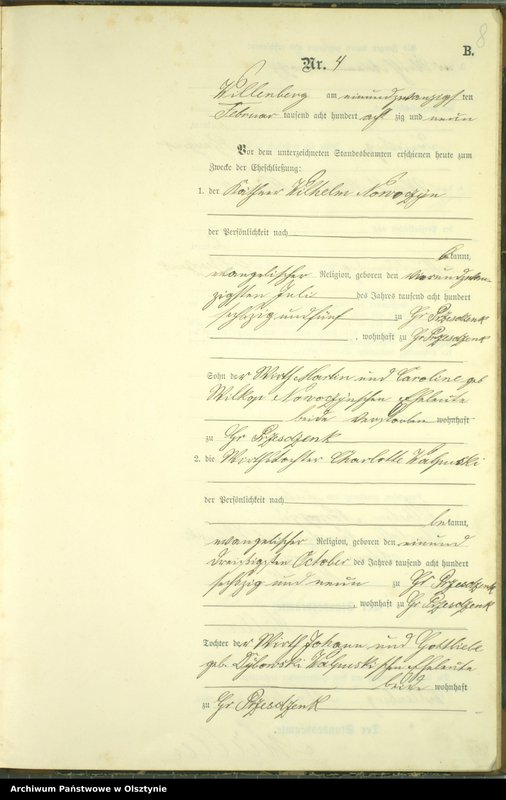 8
B.
Nr. 4
Willenberg am einundzwanzigsten
Februar tausend acht hundert acht zig und neun
Vor dem unterzeichneten Standesbeamten erschienen heute zum
Zwecke der Eheschließung:
1. der Käthner Wilhelm Nowoczyn
der Persönlichkeit nach
bekannt,
evangelischer Religion, geboren den vierundzwan-
zigsten Juli des Jahres tausend acht hundert
sechzig und fünf zu Gr Przesdzenk
, wohnhaft zu Gr Przesdzenk
Sohn der Wirth Martin und Caroline geb
Nowoczynschen Eheleute
beide verstorben wohnhaft
zu Gr Przesdzenk
2. die Wirthstochter Charlotte
der Persönlichkeit nach
bekannt,
evangelischer Religion, geboren den einund
dreißigsten October des Jahres tausend acht hundert
sechzig und neun zu Gr Przesdzenk
, wohnhaft zu Gr Przesdzenk
Tochter der Wirth Johann und Gottliebe
geb. schen Eheleute
beide wohnhaft
zu Gr Przesdzenk
Archiwum Państwowe w Olsztynie